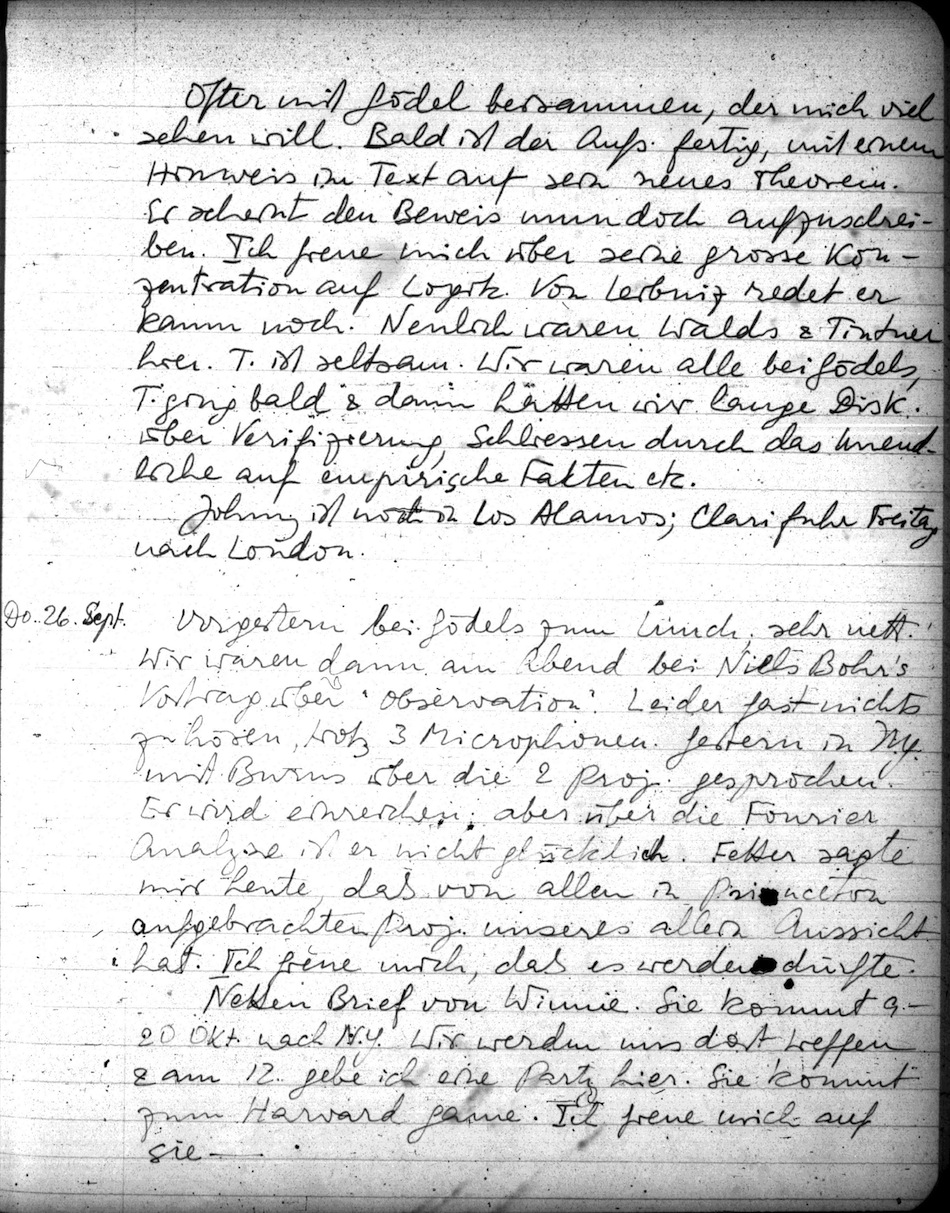 Öfter mit Gödel beisammen, der mich viel
sehen will. Bald ist der Aufs. fertig, mit einem
Hinweis im Text auf sein neues Theorem.
Er scheint den Beweis nun doch aufzuschrei-
ben. Ich freue mich über seine grosse Kon-
zentration auf Logik. Von Leibniz redet er
kaum noch. Neulich waren Walds & Tintner
hier. T. ist seltsam. Wir waren alle bei Gödels,
T. ging bald & dann hatten wir lange Disk.
über Verifizierung, Schliessen durch das Unend-
liche auf empirische Fakten etc.
Johnny ist noch in Los Alamos; Clari fuhr Freitag
nach London.
Do. 26. Sept. Vorgestern bei Gödels zum Lunch, sehr nett.
Wir waren dann am Abend bei Niels Bohr's
Vortrag über "Observation". Leider fast nichts
zu hören, trotz 3 Microphonen. Gestern in N.Y.
mit Burns über die 2 Proj. gesprochen.
Er wird einreichen; aber über die Fourier
Analyse ist er nicht glücklich. Fetter sagte
mir heute, das von allen in Princeton
aufgebrachten Proj. unseres allein Aussicht
hat. Ich freue mich, das es werden dürfte.
Netten Brief von Winnie. Sie kommt 9-
20 Okt. nach N.Y. Wir werden uns dort treffen
& am 12. gebe ich eine Party hier. Sie kommt
zum Harvard game. Ich freue mich auf
sie —